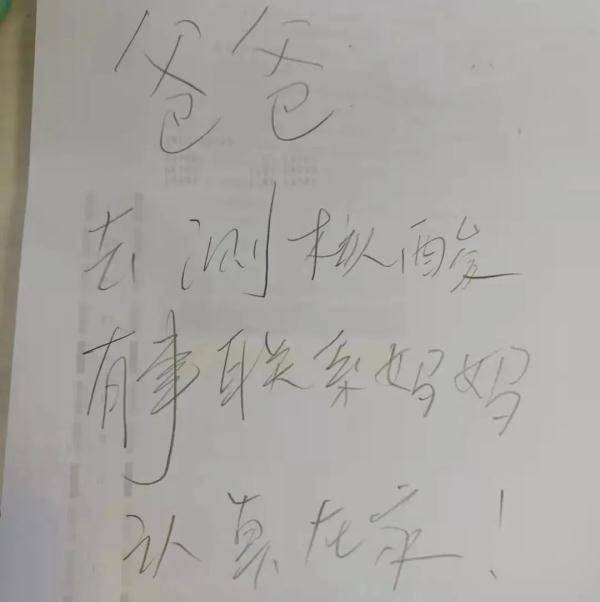 爸爸
去测核酸
有事联系妈妈
认真在家！